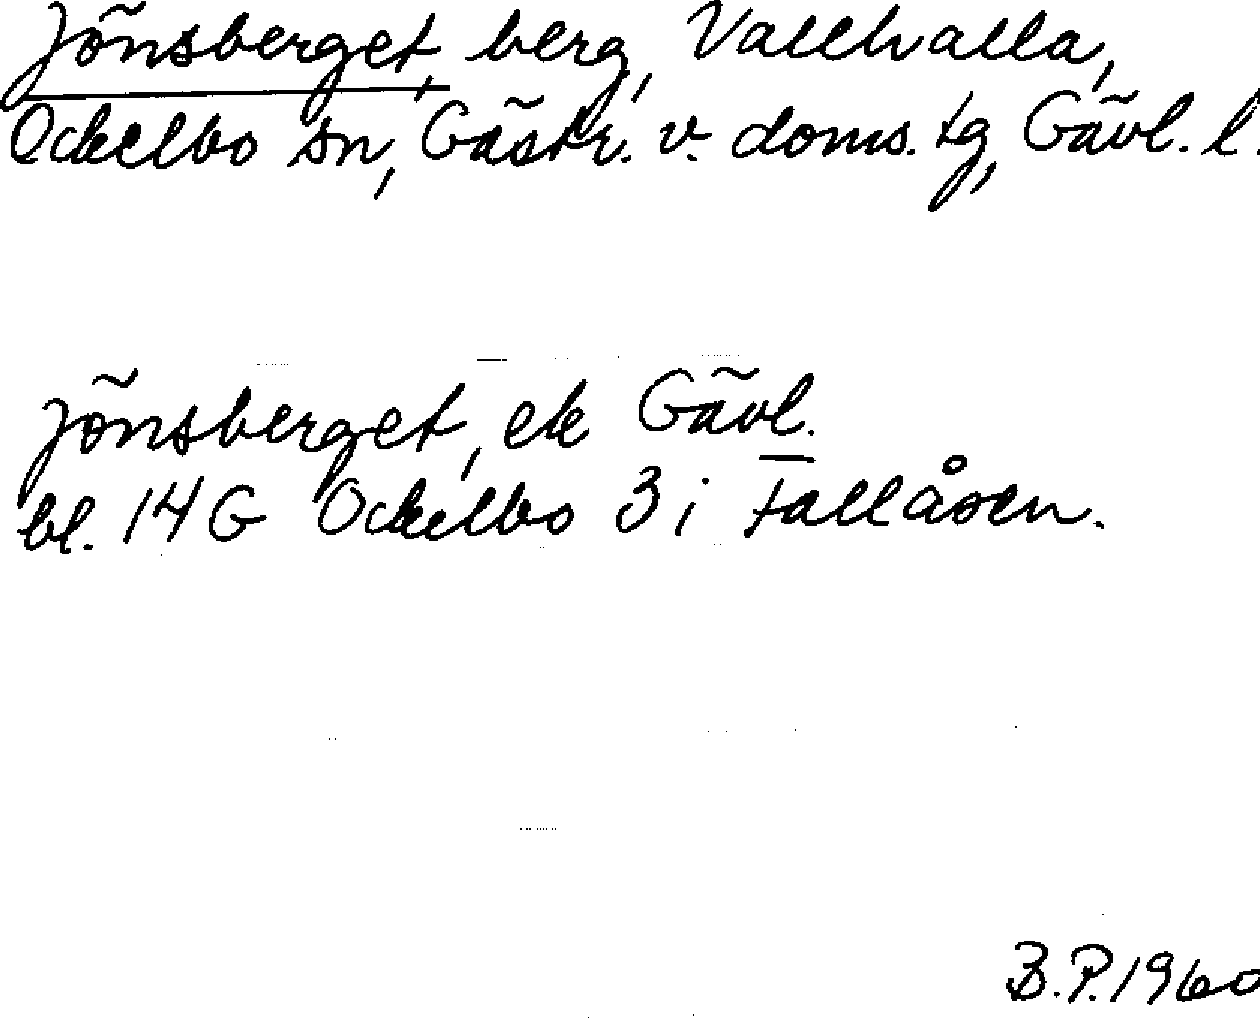 Jönsberget, berg, Vallhalla,
Ockelbo sn, Gästr. v. doms. tg, Gävl. l.
Jönsberget, ek Gävl.
bl. 14 G Ockelbo 3 i Fallåsen.
B.P. 1960